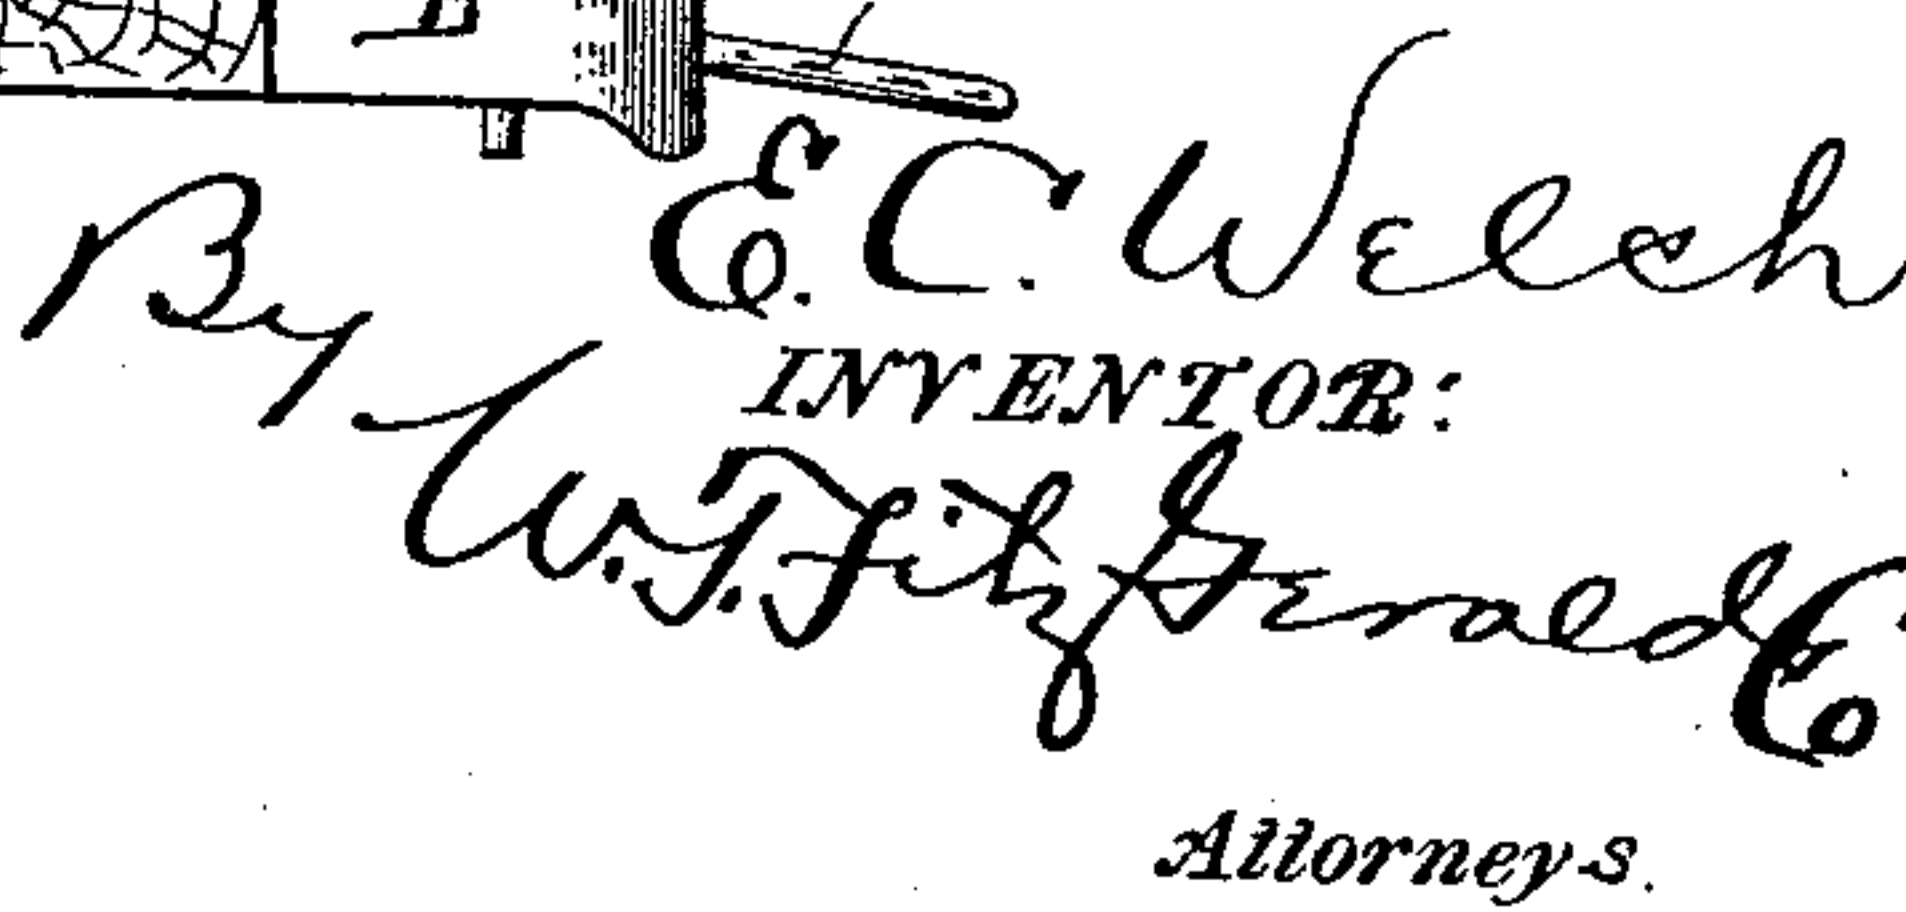 E
E. C. Welch
By
INVENTOR:
W. T. FitzGerald &
Attorneys.